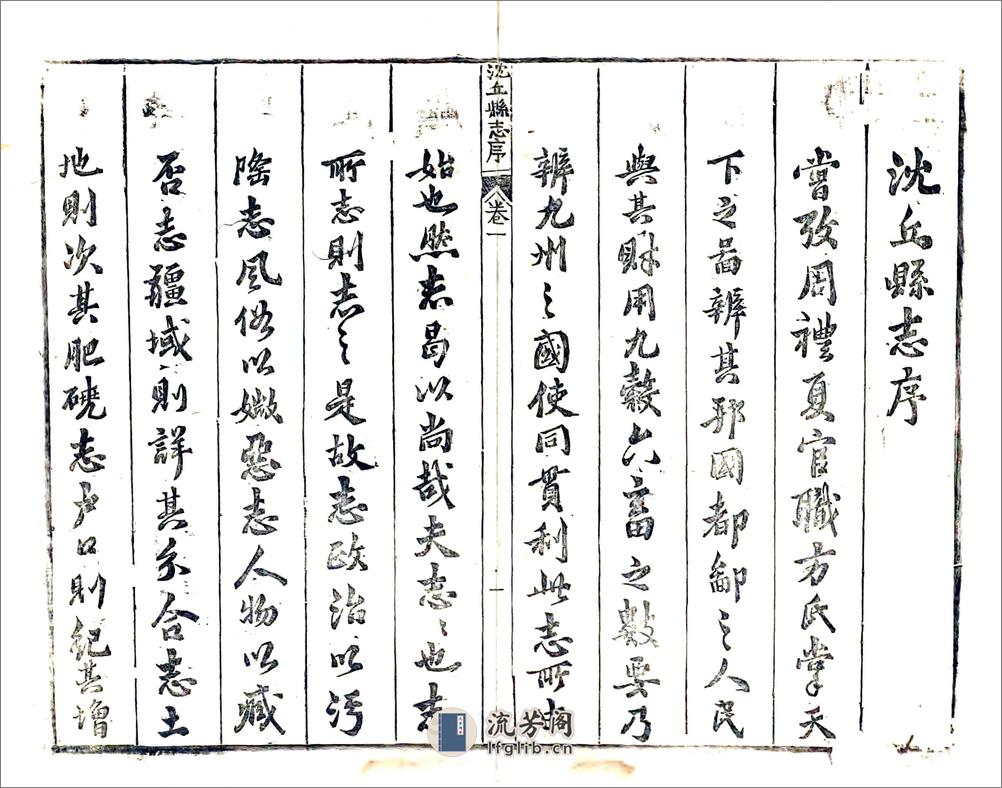 沈丘縣志序
嘗攷周禮夏官職方氏掌天
下之啚辨其邦國都鄙之人民
與其財用九穀六畜之數要乃
辨九州之國使同貫利此志所
沈丘縣志序 卷一 一
始也然志曷以尚哉夫志志也
所志則志之是故志政治以污
隆志風俗以媺惡志人物以臧
否志疆域則詳其分合志土
地則次其肥磽志户口則紀其增
流芳阁
lfglib.cn